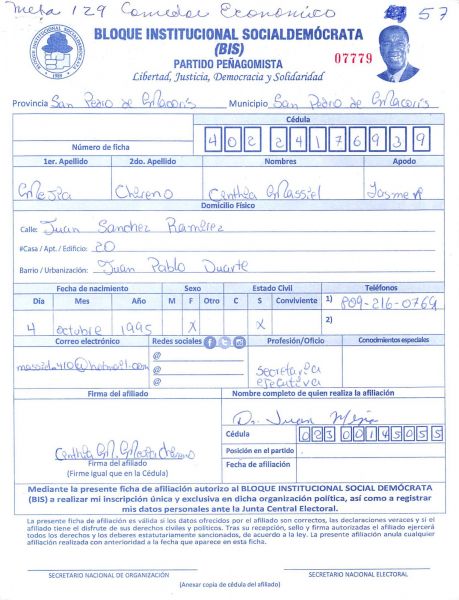 Mesa 129 Comedor Económico 57
BLOQUE INSTITUCIONAL SOCIALDEMÓCRATA
(BIS)
PARTIDO PEÑAGOMISTA
07779
Libertad, Justicia, Democracia y Solidaridad
Provincia San Pedro de Macorís Municipio San Pedro de Macorís
Cédula
Número de ficha 402 2417693 9
1er. Apellido 2do. Apellido Nombres Apodo
Mejia Chireno Cinthia Massiel
Domicilio Físico
Calle: Juan Sanchez Ramirez
#Casa / Apt. / Edificio: 20
Barrio / Urbanización: Juan Pablo Duarte
Fecha de nacimiento Sexo Estado Civil Teléfonos
Día Mes Año M F Otro C S Conviviente 1) 809-216-0769
4 octubre 1995 X X 2)
Correo electrónico Redes sociales Profesión/Oficio Conocimientos especiales
@
@
@
secretaria
ejecutiva
Firma del afiliado Nombre completo de quien realiza la afiliación
Dr. Juan Mejia
Cédula 023 0014505 5
Cinthia M. Mejia Chireno
Posición en el partido
Firma del afiliado
(Firme igual que en la Cédula)
Fecha de afiliación
Mediante la presente ficha de afiliación autorizo al BLOQUE INSTITUCIONAL SOCIAL DEMÓCRATA
(BIS) a realizar mi inscripción única y exclusiva en dicha organización política, así como a registrar
mis datos personales ante la Junta Central Electoral.
La presente ficha de afiliación es válida si los datos ofrecidos por el afiliado son correctos, las declaraciones veraces y si el
afiliado tiene el disfrute de sus derechos civiles y políticos. Tras su recepción, sello y firma autorizadas el afiliado ejercerá
todos los derechos y los deberes estatutariamente sancionados, de acuerdo a la ley. La presente afiliación anula cualquier
afiliación realizada con anterioridad a la fecha que aparece en esta ficha.
SECRETARIO NACIONAL DE ORGANIZACIÓN SECRETARIO NACIONAL ELECTORAL
(Anexar copia de cédula del afiliado)